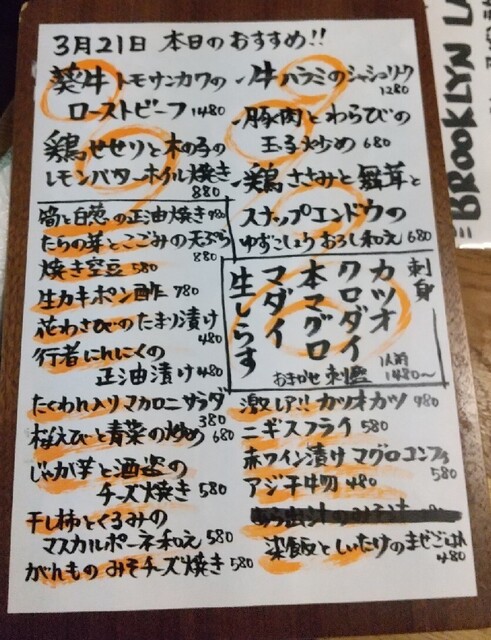 3月21日 本日のおすすめ!!
葵牛トモサンカクの
ローストビーフ 1480
鶏せせりと木の子の
レモンバターホイル焼き
880
筍と白葱の正油焼き 980
たらの芽とこごみの天ぷら
880
焼き空豆 580
生カキポン酢 780
花わさびのたまり漬け
480
行者にんにくの
正油漬け 480
たくわん入りマカロニサラダ
380
桜えびと青菜の炒め 680
じゃが芋と酒盗の
チーズ焼き 580
干し柿とくるみの
マスカルポーネ和え 580
がんものみそチーズ焼き 580
牛ハラミのシャシュリク
1280
豚肉とわらびの
玉子炒め 680
鶏ささみと舞茸と
スナップエンドウの
ゆずこしょうおろし和え 680
刺身
カツオ
クロダイ
本マグロ
マダイ
生しらす
おまかせ刺盛
1人前
1480〜
激レア!! カツオカツ 980
ニギスフライ 580
赤ワイン漬けマグロコンフィ
580
アジ干物 480
深飯としいたけのまぜごはん
480
BROOKLYN LA